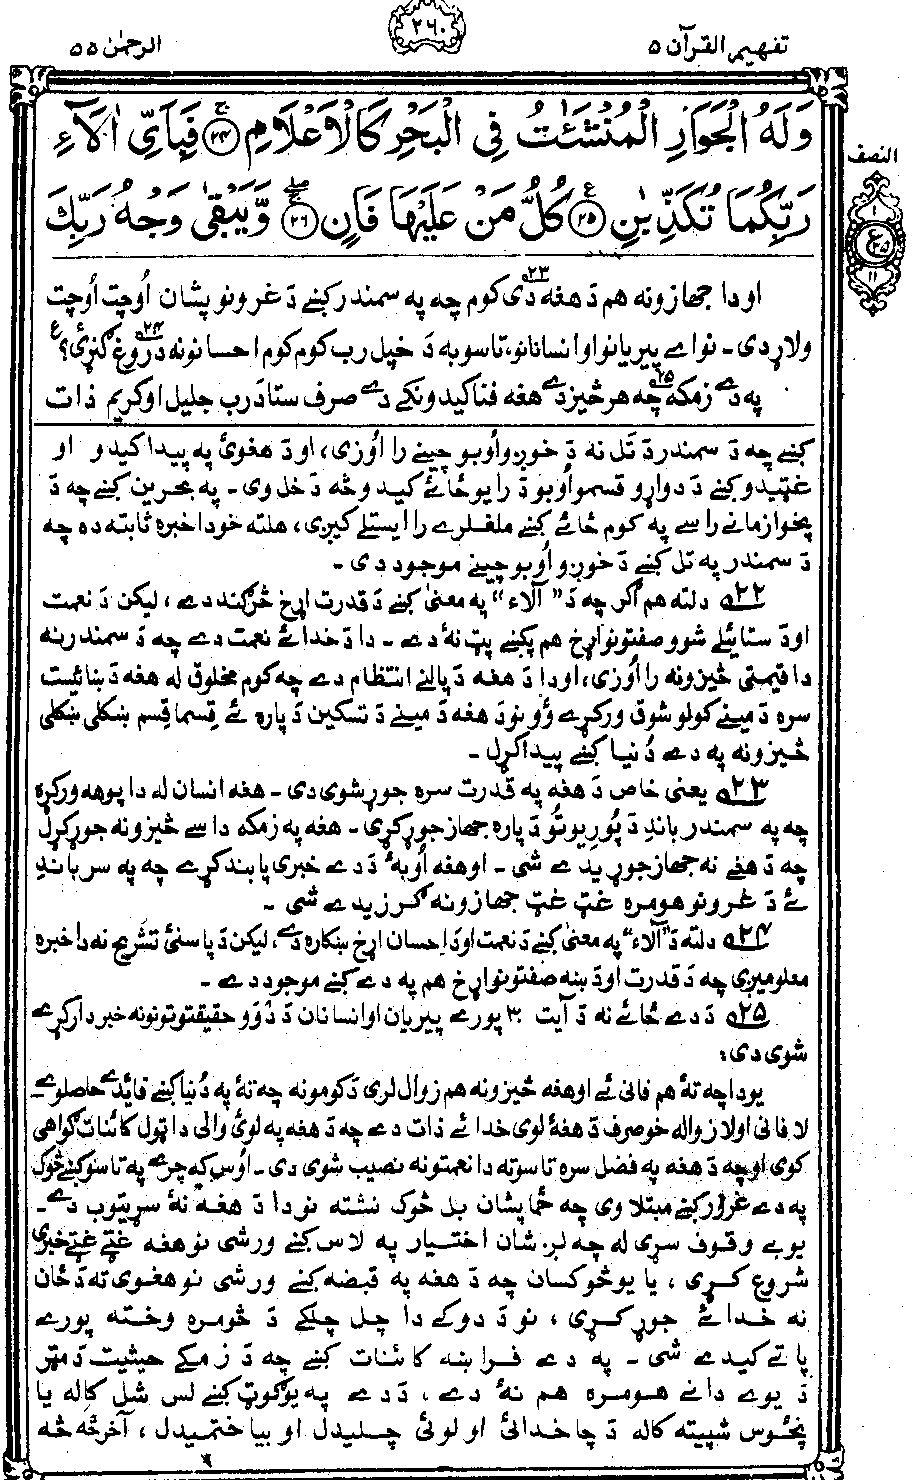 تفهيم القرآن ۵
۲۶۰
الرحمٰن ۵۵
وَلَهُ الْجَوَارِ الْمُنْشَئٰتُ فِي الْبَحْرِ كَالْاَعْلَامِ ۚ‏﴿۲۴﴾‏ فَبِاَيِّ اٰلَآءِ
رَبِّكُمَا تُكَذِّبٰنِ ﴿۲۵﴾ ع كُلُّ مَنْ عَلَيْهَا فَانٍ ﴿۲۶﴾ وَّيَبْقٰى وَجْهُ رَبِّكَ
النصف
۱
ع
۲۵
۱۱
او دا جهازونه هم دَ هغه دی ۲۳ کوم چه په سمندر کښے دَ غرونو پشان اُوچت اُوچت
ولاړ دی ـ نو اے پیریانو او انسانانو، تاسو به دَ خپل رب کوم کوم احسانونه دروغ ګنړئ؟ ۲۴ ع
په دے زمکه ۲۵ چه هر څیز دے هغه فنا کیدونکے دے صرف ستا دَ رب جلیل او کریم ذات
کښے چه دَ سمندر دَ تل نه دَ خوږو اُوبو چینے را اُوزی، او دَ هغوئ په پیدا کیدو او
غټیدو کښے دَ دواړو قسمو اُوبو دَ رایو ځائے کیدو څه دخل وی ـ په بحرین کښے چه دَ
پخوا زمانے راسے په کوم ځائے کښے ملغلرے را ایستلے کیږی، هلته خو دا خبره ثابته ده چه
دَ سمندر په تل کښے دَ خوږو اُوبو چینے موجود دی ـ
۲۲ دلته هم اګر چه دَ "آلاء" په معنیٰ کښے دَ قدرت اړخ څرګند دے، لیکن دَ نعمت
او دَ ستائیلے شوو صفتونو اړخ هم پکښے پټ نۀ دے ـ دا دَ خدائے نعمت دے چه دَ سمندر نه
دا قیمتی څیزونه را اُوزی، او دا دَ هغه دَ پالنے انتظام دے چه کوم مخلوق له هغه دَ ښائیست
سره دَ مینے کولو شوق ورکړے وُو نو دَ هغه دَ مینے دَ تسکین دَ پاره ئے قِسما قِسم ښکلی ښکلی
څیزونه په دے دُنیا کښے پیدا کړل ـ
۲۳ یعنی خاص دَ هغه په قدرت سره جوړ شوی دی ـ هغه انسان له دا پوهه ورکړه
چه په سمندر باندِ دَ پُورېوتُو دَ پاره جهاز جوړ کړی ـ هغه په زمکه داسے څیزونه جوړ کړل
چه دَ هغے نه جهاز جوړیدے شی ـ او هغه اُوبه دَ دے خبری پابند کړے چه په سر باندِ
ئے دَ غرونو هومره غټ غټ جهازونه ګرزیدے شی ـ
۲۴ دلته دَ "آلاء" په معنیٰ کښے دَ نعمت او دَ احسان اړخ ښکاره دے، لیکن دَ پاسنئ تشریح نه دا خبره
معلومیږی چه دَ قدرت او دَ ښه صفتونو اړخ هم په دے کښے موجود دے ـ
۲۵ دَ دے ځائے نه دَ آیت ۳۰ پورے پیریان او انسانان دَ دُوو حقیقتونو نه خبردار کړے
شوی دی:
یو دا چه تۀ هم فانی ئے او هغه څیزونه هم زوال لری دَ کومو نه چه تۀ په دُنیا کښے فائدے حاصلوے ـ
لافانی او لازواله خو صرف دَ هغۀ لوی خدائے ذات دے چه دَ هغه په لوئ والی دا ټول کائنات ګواهی
کوی او چه دَ هغه په فضل سره تاسو ته دا نعمتونه نصیب شوی دی ـ اوس که چرے په تاسو کښے څوک
په دے غرور کښے مبتلا وی چه ځما پشان بل څوک نشته نو دا دَ هغه نۀ سړیتوب دے ـ
یو بے وقوف سړی له چه لږ شان اختیار په لاس کښے ورشی نو هغه غټے غټے خبری
شروع کړی، یا یو څو کسان چه دَ هغه په قبضه کښے ورشی نو هغوی ته دَ ځان
نه خدائے جوړ کړی، نو دَ دوکے دا چل چلکے دَ څومره وخته پورے
پاتے کیدے شی ـ په دے فراښه کائنات کښے چه دَ زمکے حیثیت دَ مټر
دَ یوے دانے هومره هم نۀ دے، دَ دے په یو کوټ کښے لس شل کاله یا
پنځوس شپیته کاله دَ چا خدائی او لوئی چلیدل او بیا ختمیدل، آخر څه څه